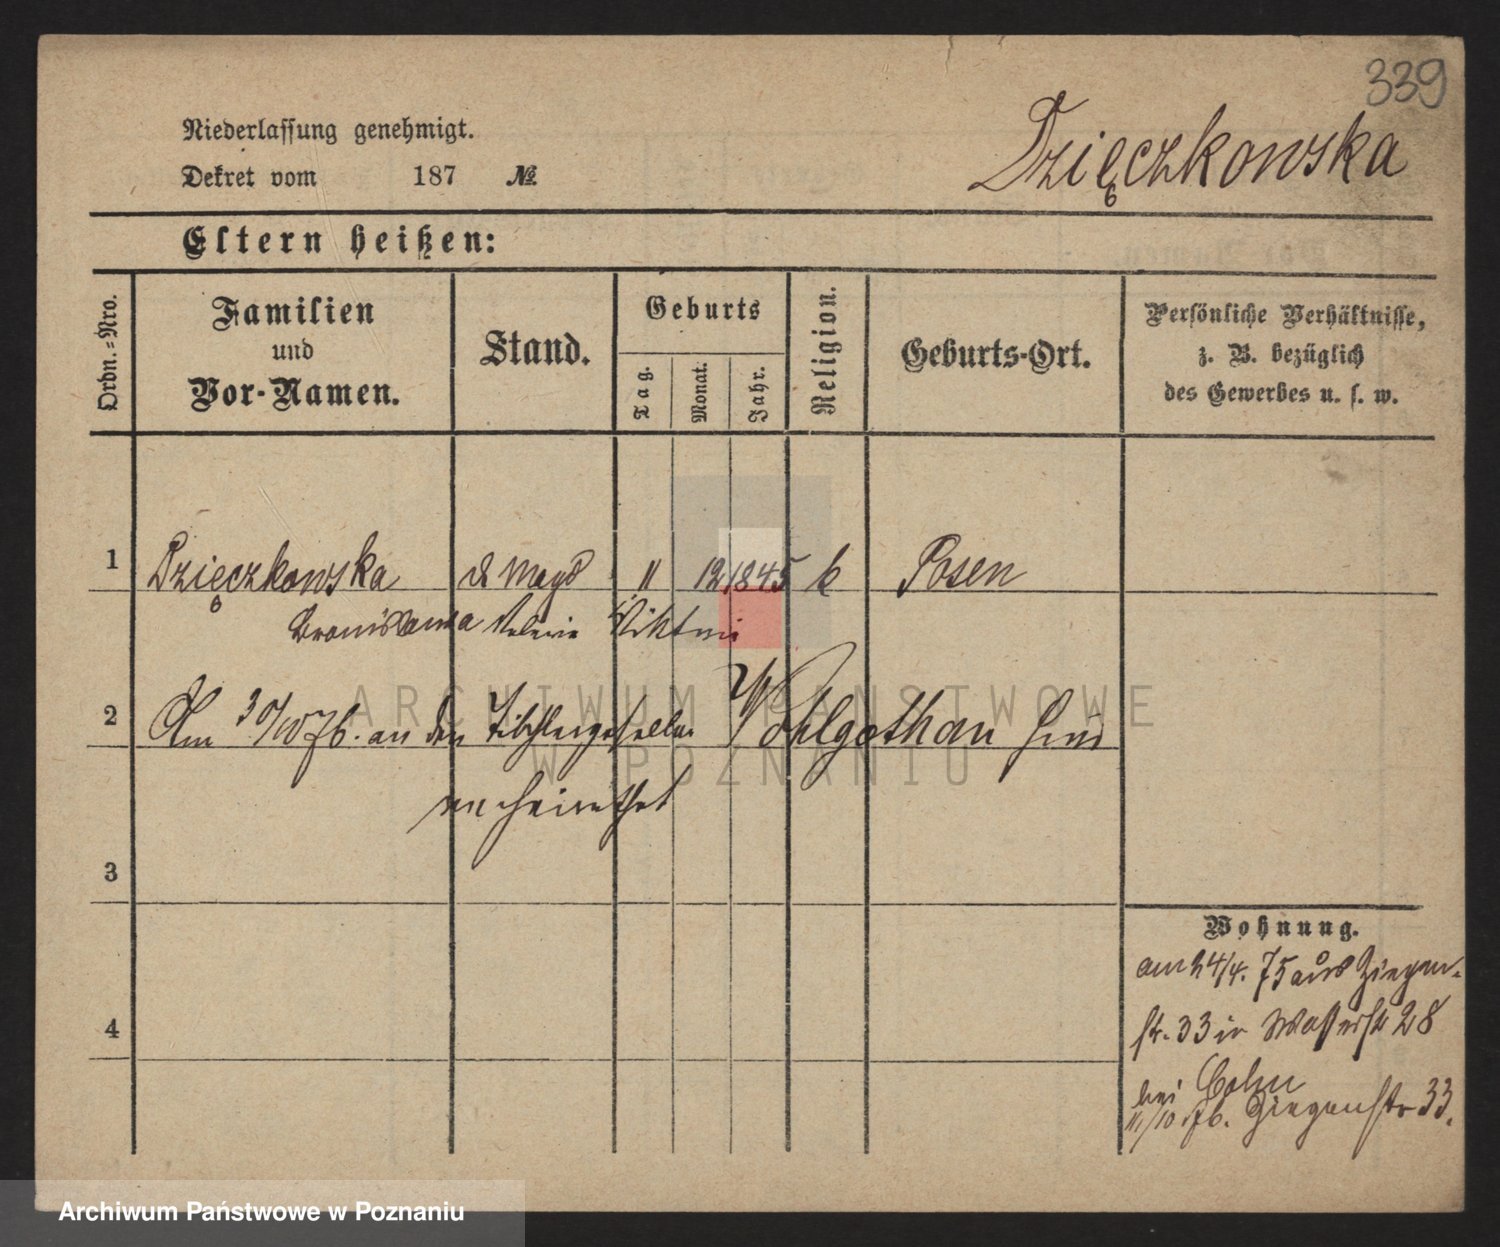 339
Dzięczkowska
Niederlassung genehmigt.
Dekret vom 187 №
Eltern heißen:
Ordn.-Nro.
Familien
und
Vor-Namen.
Stand.
Geburts
Tag.
Monat.
Jahr.
Religion.
Geburts-Ort.
Persönliche Verhältnisse,
z. B. bezüglich
des Gewerbes u. s. w.
1 Dzięczkowska d Magd 11 12 1845 k Posen
Bronislawa Valerie Viktoria
2 Am 30/10 76. an den Tischlergesellen Wohlgethan hier
verheirathet
3
4
Wohnung.
am 24/4. 75 aus Ziegen-
str. 33 in Wasserstr 28
bei Cohn
11/10 76. Ziegenstr 33.
ARCHIWUM PAŃSTWOWE
W POZNANIU
Archiwum Państwowe w Poznaniu